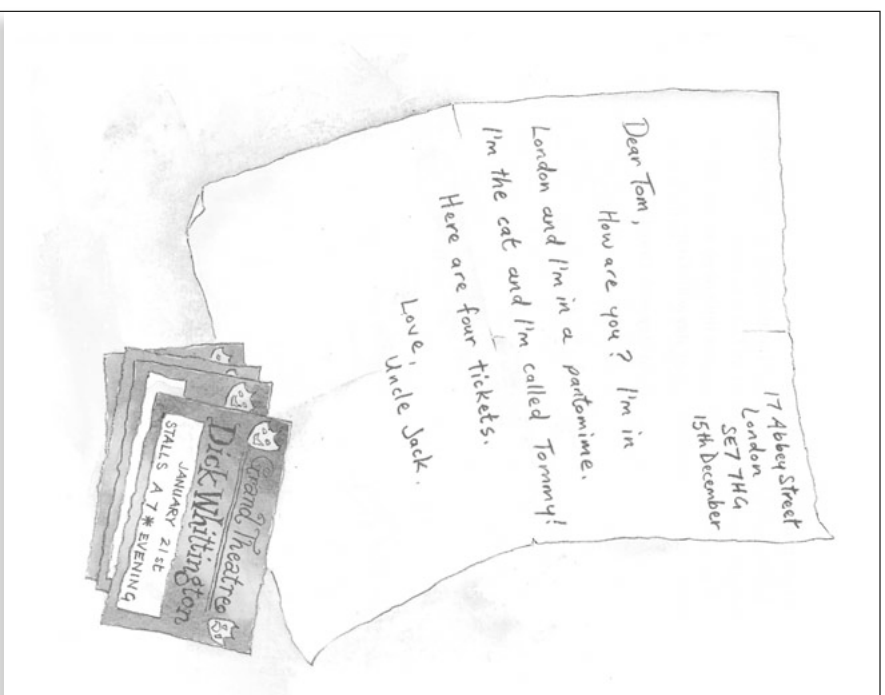 17 Abbey Street
London
SE7 7HG
15th December
Dear Tom,
How are you? I'm in
London and I'm in a pantomime.
I'm the cat and I'm called Tommy!
Here are four tickets.
Love,
Uncle Jack.
Grand Theatre
Dick Whittington
JANUARY 21st
STALLS A 7 * EVENING